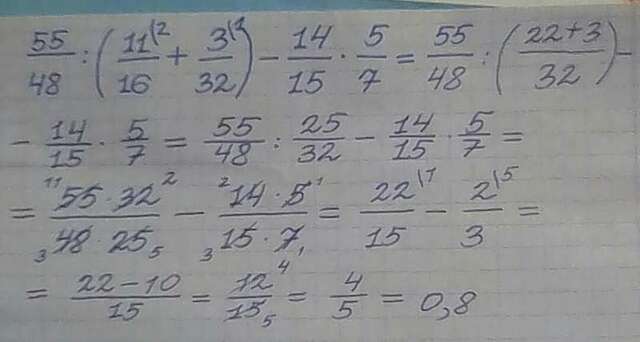 55/48 : (11\2/16 + 3\1/32) - 14/15 · 5/7 = 55/48 : (22+3/32) -
- 14/15 · 5/7 = 55/48 : 25/32 - 14/15 · 5/7 =
= 11 55 · 32 2/3 48 · 25 5 - 2 14 · 5 1/3 15 · 7 1 = 22\1/15 - 2\5/3 =
= 22-10/15 = 12 4/15 5 = 4/5 = 0,8